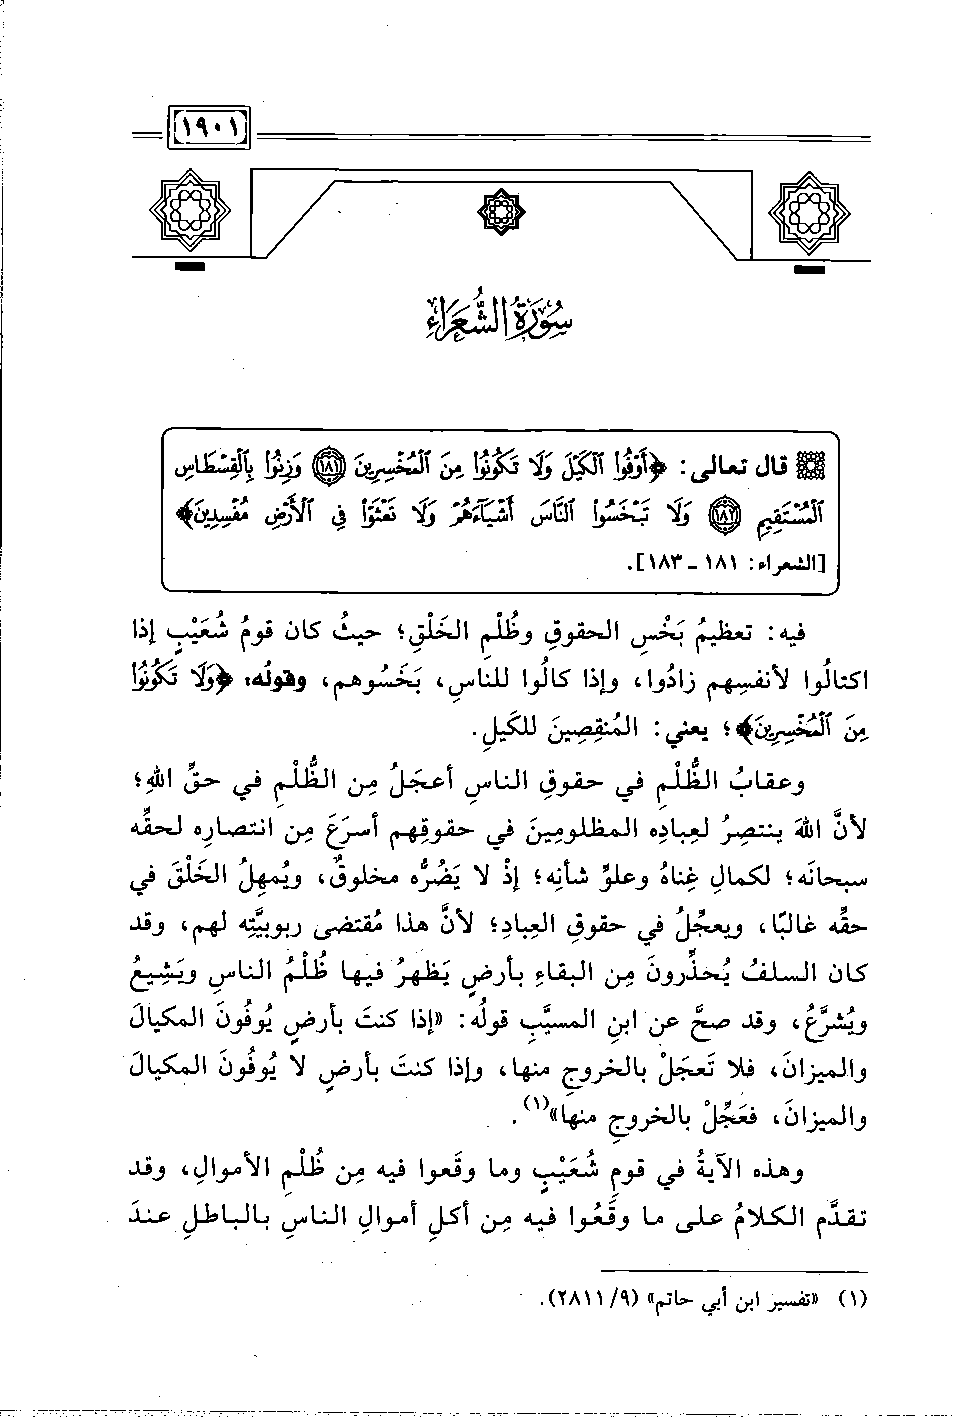 ١٩٠١
سُورَةُ الشُّعَرَاءِ
قال تعالى: ﴿أَوْفُوا۟ ٱلْكَيْلَ وَلَا تَكُونُوا۟ مِنَ ٱلْمُخْسِرِينَ ۝١٨١ وَزِنُوا۟ بِٱلْقِسْطَاسِ
ٱلْمُسْتَقِيمِ ۝١٨٢ وَلَا تَبْخَسُوا۟ ٱلنَّاسَ أَشْيَآءَهُمْ وَلَا تَعْثَوْا۟ فِى ٱلْأَرْضِ مُفْسِدِينَ﴾
[الشعراء: ١٨١ ـ ١٨٣].
فيه: تعظيمُ بَخْسِ الحقوقِ وظُلْمِ الخَلْقِ؛ حيثُ كان قومُ شُعَيْبٍ إذا
اكتالُوا لأنفسِهم زادُوا، وإذا كالُوا للناسِ، بَخَسُوهم، وقولُه: ﴿وَلَا تَكُونُوا۟
مِنَ ٱلْمُخْسِرِينَ﴾؛ يعني: المُنقِصِينَ للكَيلِ.
وعقابُ الظُّلْمِ في حقوقِ الناسِ أعجَلُ مِن الظُّلْمِ في حقِّ اللهِ؛
لأنَّ اللهَ ينتصِرُ لعِبادِه المظلومِينَ في حقوقِهم أسرَعَ مِن انتصارِه لحقِّه
سبحانَه؛ لكمالِ غِناهُ وعلوِّ شأنِه؛ إذْ لا يَضُرُّه مخلوقٌ، ويُمهِلُ الخَلْقَ في
حقِّه غالبًا، ويعجِّلُ في حقوقِ العِبادِ؛ لأنَّ هذا مُقتضى ربوبيَّتِه لهم، وقد
كان السلفُ يُحذِّرونَ مِن البقاءِ بأرضٍ يَظهرُ فيها ظُلْمُ الناسِ ويَشِيعُ
ويُشرَّعُ، وقد صحَّ عن ابنِ المسيَّبِ قولُه: «إذا كنتَ بأرضٍ يُوفُونَ المكيالَ
والميزانَ، فلا تَعجَلْ بالخروجِ منها، وإذا كنتَ بأرضٍ لا يُوفُونَ المكيالَ
والميزانَ، فعَجِّلْ بالخروجِ منها»(١).
وهذه الآيةُ في قومِ شُعَيْبٍ وما وقَعوا فيه مِن ظُلْمِ الأموالِ، وقد
تقدَّم الكلامُ على ما وقَعُوا فيه مِن أكلِ أموالِ الناسِ بالباطلِ عندَ
(١) «تفسير ابن أبي حاتم» (٩/ ٢٨١١).